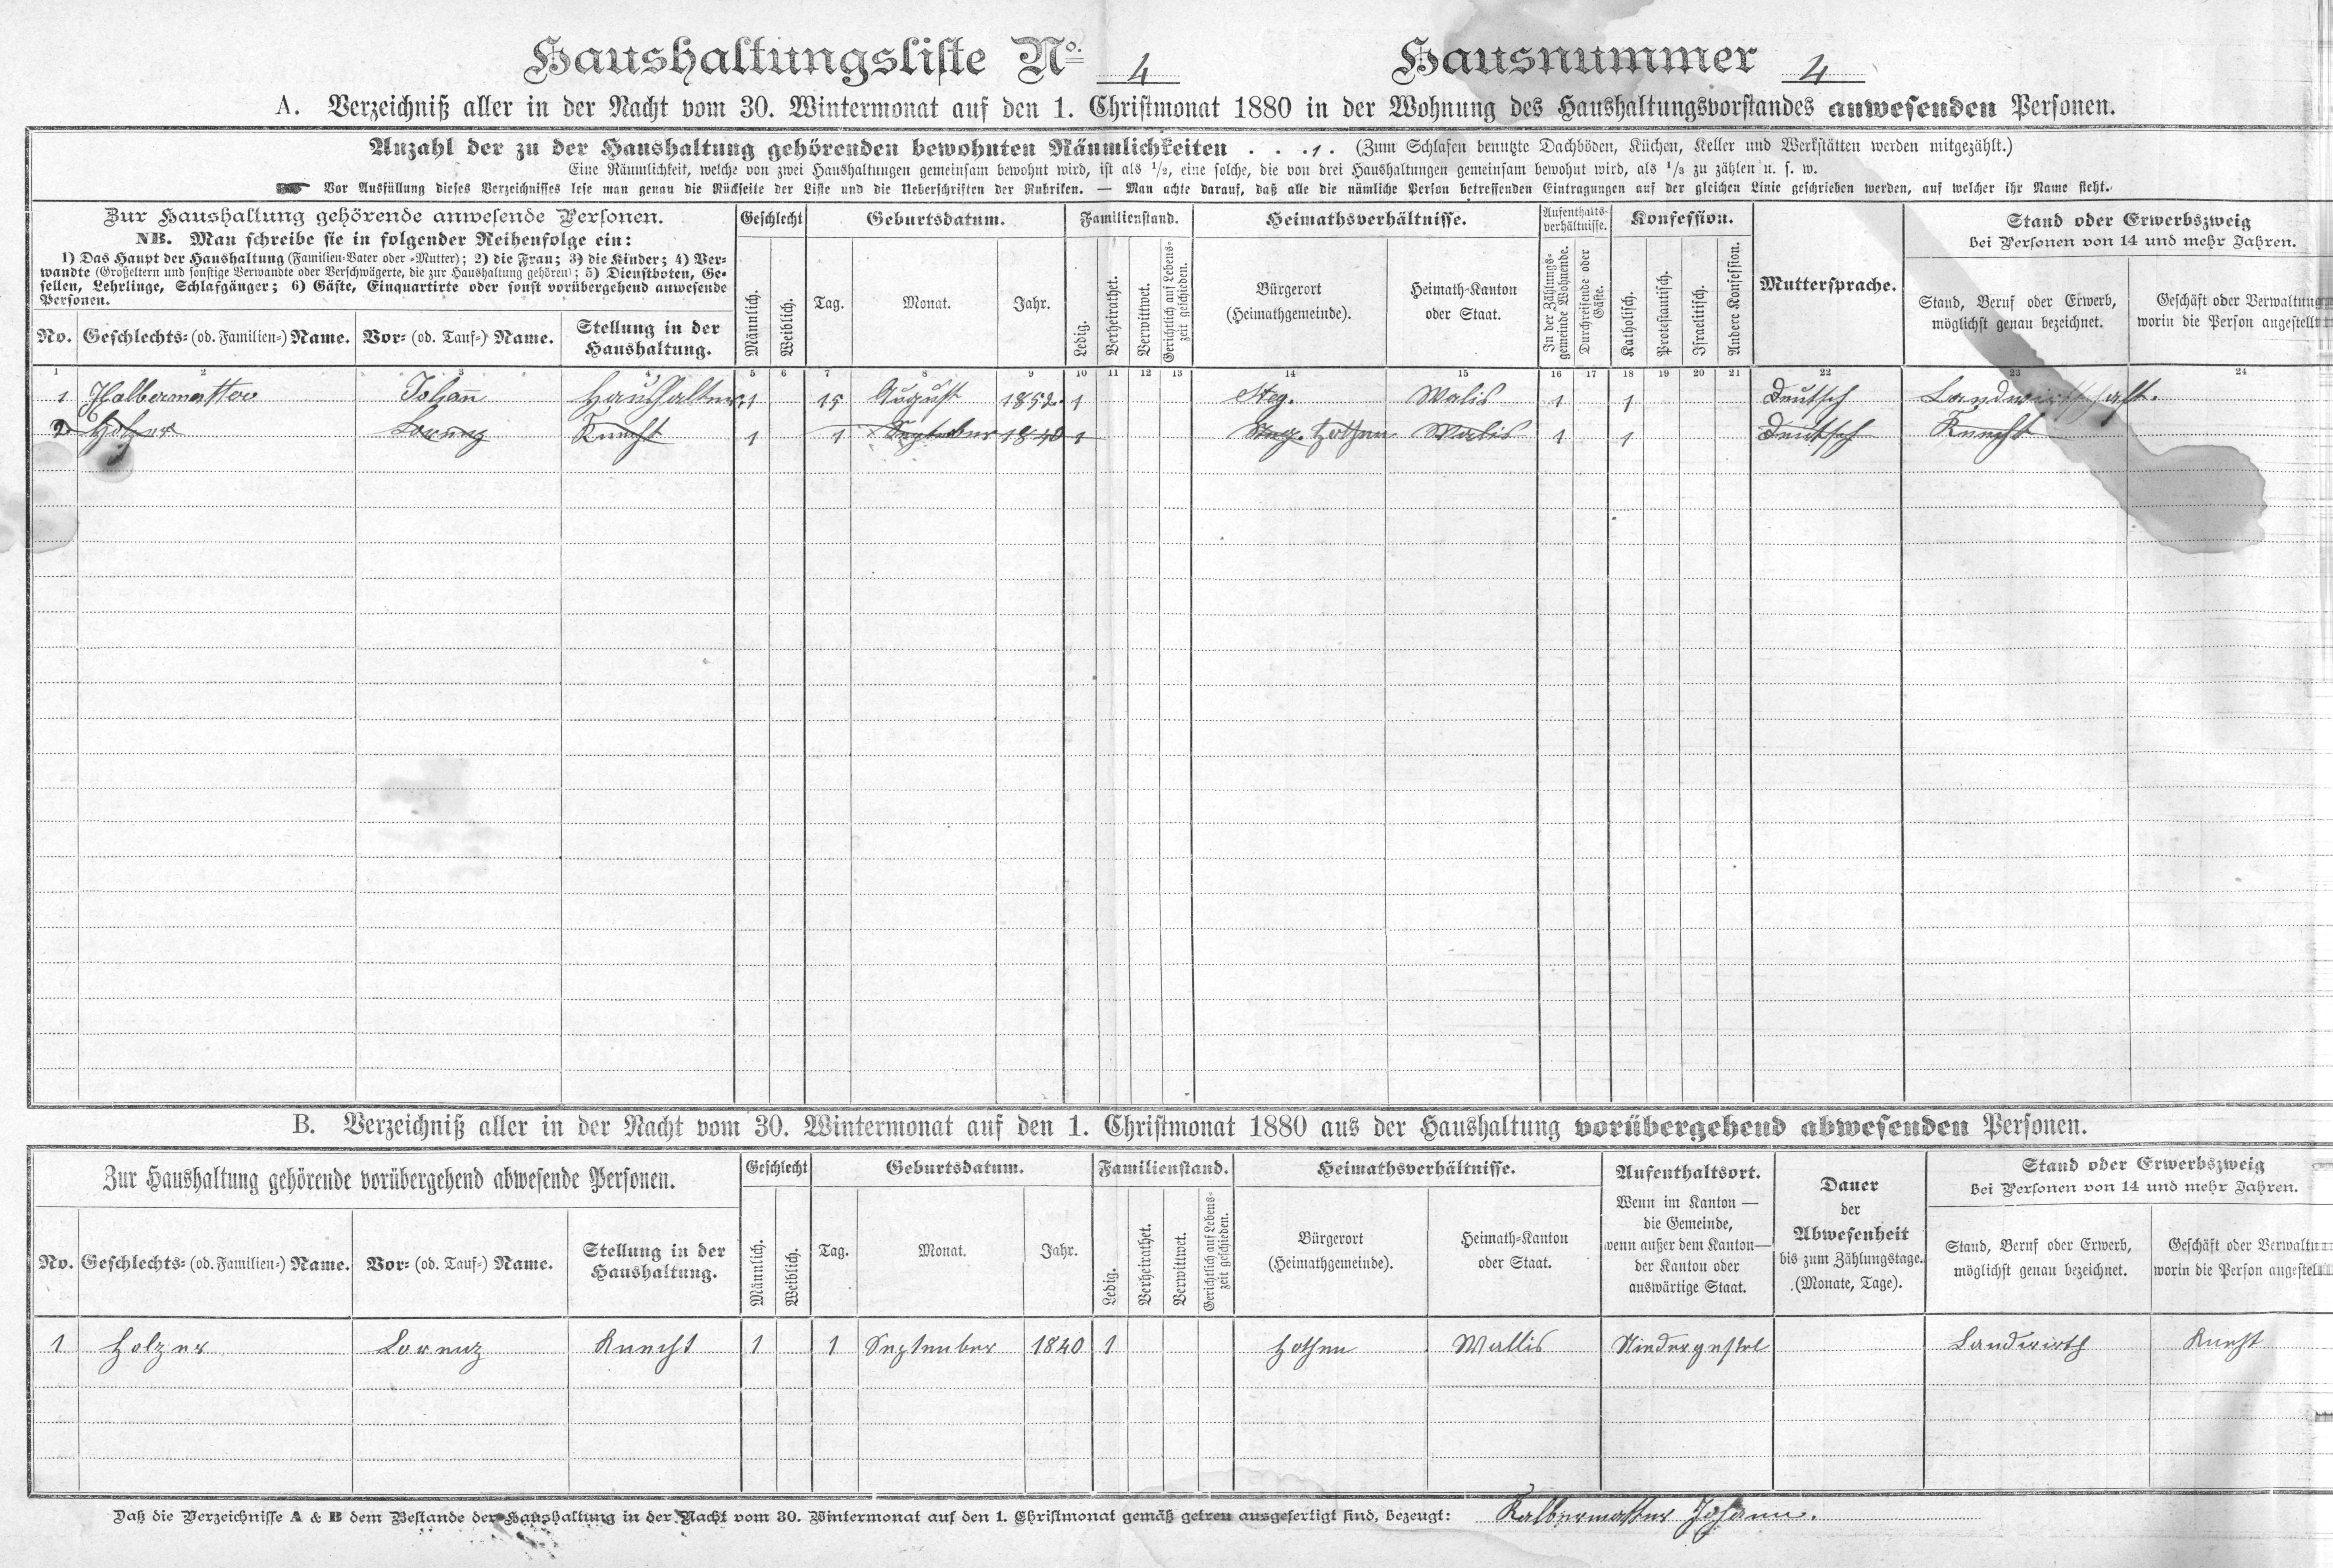 Haushaltungsliste No. 4 Hausnummer 4
A. Verzeichniß aller in der Nacht vom 30. Wintermonat auf den 1. Christmonat 1880 in der Wohnung des Haushaltungsvorstandes anwesenden Personen.
Anzahl der zu der Haushaltung gehörenden bewohnten Räumlichkeiten . . . 1. (Zum Schlafen benutzte Dachböden, Küchen, Keller und Werkstätten werden mitgezählt.)
Eine Räumlichkeit, welche von zwei Haushaltungen gemeinsam bewohnt wird, ist als 1/2, eine solche, die von drei Haushaltungen gemeinsam bewohnt wird, als 1/3 zu zählen u. s. w.
Vor Ausfüllung dieses Verzeichnisses lese man genau die Rückseite der Liste und die Ueberschriften der Rubriken. — Man achte darauf, daß alle die nämliche Person betreffenden Eintragungen auf der gleichen Linie geschrieben werden, auf welcher ihr Name steht.
Zur Haushaltung gehörende anwesende Personen.
NB. Man schreibe sie in folgender Reihenfolge ein:
1) Das Haupt der Haushaltung (Familien-Vater oder -Mutter); 2) die Frau; 3) die Kinder; 4) Ver-
wandte (Großeltern und sonstige Verwandte oder Verschwägerte, die zur Haushaltung gehören); 5) Dienstboten, Ge-
sellen, Lehrlinge, Schlafgänger; 6) Gäste, Einquartirte oder sonst vorübergehend anwesende
Personen.
No. Geschlechts- (od. Familien-) Name. Vor- (od. Tauf-) Name. Stellung in der
Haushaltung.
Geschlecht
Männlich. Weiblich.
Geburtsdatum.
Tag. Monat. Jahr.
Familienstand.
Ledig. Verheirathet. Verwittwet. Gerichtlich auf Lebens-
zeit geschieden.
Heimathsverhältnisse.
Bürgerort
(Heimathgemeinde).
Heimath-Kanton
oder Staat.
Aufenthalts-
verhältnisse.
In der Zählungs-
gemeinde Wohnende.
Durchreisende oder
Gäste.
Konfession.
Katholisch. Protestantisch. Israelitisch. Andere Konfession.
Muttersprache.
Stand oder Erwerbszweig
bei Personen von 14 und mehr Jahren.
Stand, Beruf oder Erwerb,
möglichst genau bezeichnet.
Geschäft oder Verwaltung
worin die Person angestellt
1 2 3 4 5 6 7 8 9 10 11 12 13 14 15 16 17 18 19 20 21 22 23 24
1 Halbermatter Johan̅ Haushalter 1 15 August 1852 1 Steg. Walis 1 1 Deutsch Landwirthschaft.
2 Holzer Lorenz Knecht 1 1 September 1840 1 Steg. Hothen Walis 1 1 Deutsch Knecht
B. Verzeichniß aller in der Nacht vom 30. Wintermonat auf den 1. Christmonat 1880 aus der Haushaltung vorübergehend abwesenden Personen.
Zur Haushaltung gehörende vorübergehend abwesende Personen.
No. Geschlechts- (od. Familien-) Name. Vor- (od. Tauf-) Name. Stellung in der
Haushaltung.
Geschlecht
Männlich. Weiblich.
Geburtsdatum.
Tag. Monat. Jahr.
Familienstand.
Ledig. Verheirathet. Verwittwet. Gerichtlich auf Lebens-
zeit geschieden.
Heimathsverhältnisse.
Bürgerort
(Heimathgemeinde).
Heimath-Kanton
oder Staat.
Aufenthaltsort.
Wenn im Kanton —
die Gemeinde,
wenn außer dem Kanton—
der Kanton oder
auswärtige Staat.
Dauer
der
Abwesenheit
bis zum Zählungstage.
(Monate, Tage).
Stand oder Erwerbszweig
bei Personen von 14 und mehr Jahren.
Stand, Beruf oder Erwerb,
möglichst genau bezeichnet.
Geschäft oder Verwaltu
worin die Person angestel
1 Holzer Lorenz Knecht 1 1 September 1840 1 Hothen Wallis Niedergestel Landwirth Knecht
Daß die Verzeichnisse A & B dem Bestande der Haushaltung in der Nacht vom 30. Wintermonat auf den 1. Christmonat gemäß getreu ausgefertigt sind, bezeugt: Kalbermatter Johann.